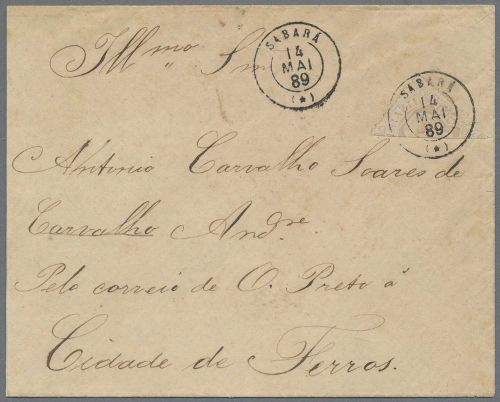 Ill.mo Snr
SABARÁ
14
MAI
89
(*)
SABARÁ
14
MAI
89
(*)
Antonio Carvalho Soares de
Carvalho And.re
Pelo correio de O. Preto á
Cidade de Ferros.